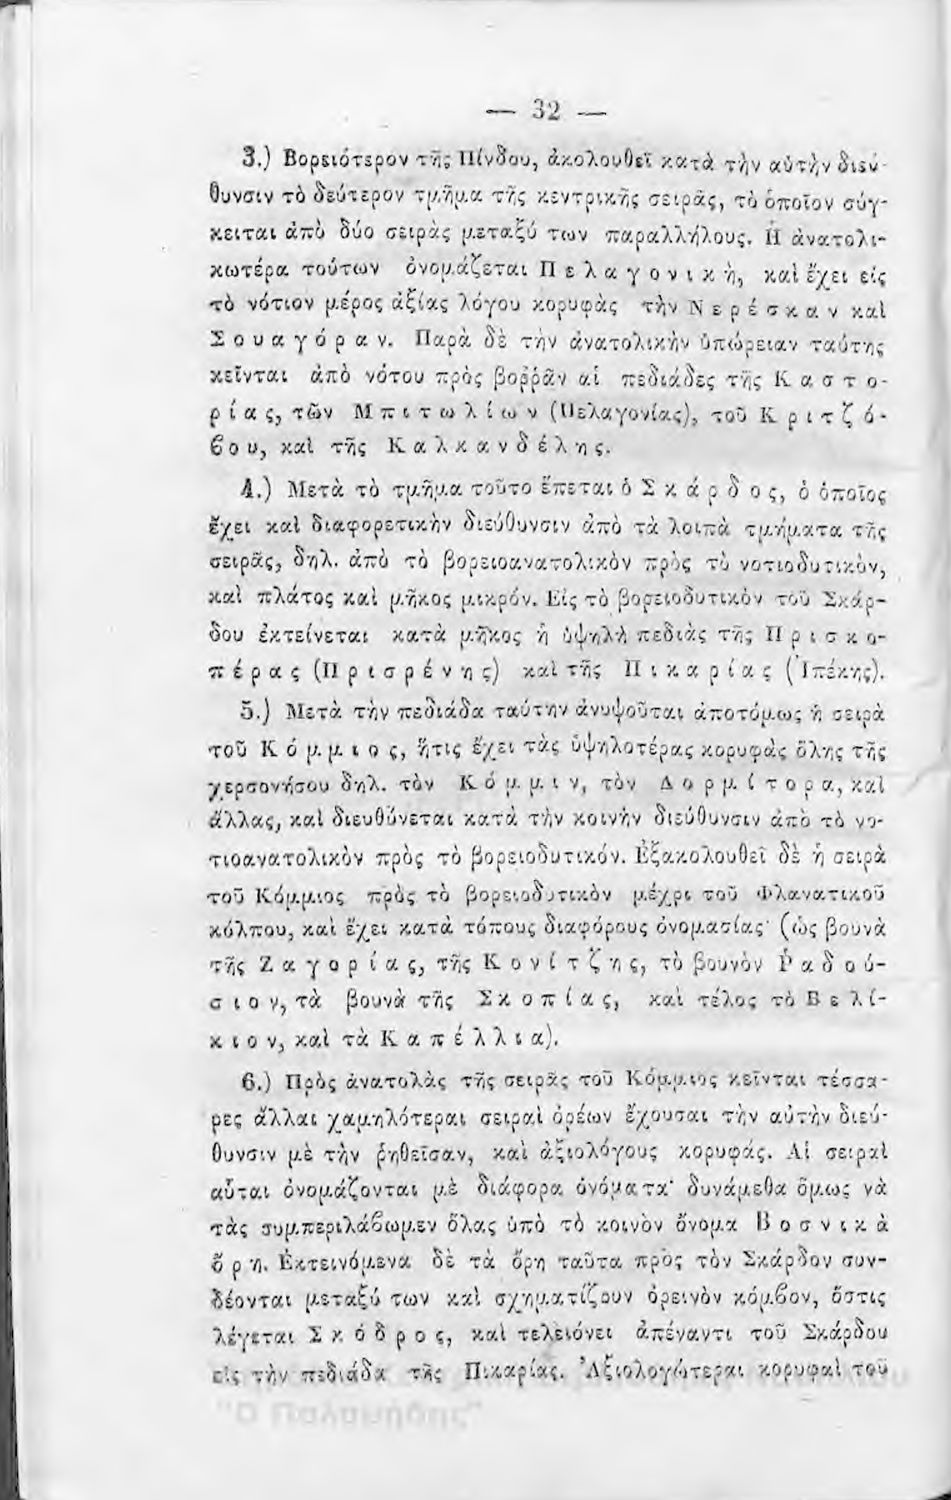 — 32 —
3.) Βορειότερον τῆς Πίνδου, ἀκολουθεῖ κατὰ τὴν αὐτὴν διεύ-
θυνσιν τὸ δεύτερον τμῆμα τῆς κεντρικῆς σειρᾶς, τὸ ὁποῖον σύγ-
κειται ἀπὸ δύο σειρὰς μεταξύ των παραλλήλους. Ἡ ἀνατολι-
κωτέρα τούτων ὀνομάζεται Πελαγονικὴ, καὶ ἔχει εἰς
τὸ νότιον μέρος ἀξίας λόγου κορυφὰς τὴν Νερέσκαν καὶ
Σουαγόραν. Παρὰ δὲ τὴν ἀνατολικὴν ὑπώρειαν ταύτης
κεῖνται ἀπὸ νότου πρὸς βοῤῥᾶν αἱ πεδιάδες τῆς Καστο-
ρίας, τῶν Μπιτωλίων (Πελαγονίας), τοῦ Κριτζό-
βου, καὶ τῆς Καλκανδέλης.
4.) Μετὰ τὸ τμῆμα τοῦτο ἕπεται ὁ Σκάρδος, ὁ ὁποῖος
ἔχει καὶ διαφορετικὴν διεύθυνσιν ἀπὸ τὰ λοιπὰ τμήματα τῆς
σειρᾶς, δηλ. ἀπὸ τὸ βορειοανατολικὸν πρὸς τὸ νοτιοδυτικὸν,
καὶ πλάτος καὶ μῆκος μικρόν. Εἰς τὸ βορειοδυτικὸν τοῦ Σκάρ-
δου ἐκτείνεται κατὰ μῆκος ἡ ὑψηλὴ πεδιὰς τῆς Πρισκο-
πέρας (Πρισρένης) καὶ τῆς Πικαρίας (Ἰπέκης).
5.) Μετὰ τὴν πεδιάδα ταύτην ἀνυψοῦται ἀποτόμως ἡ σειρὰ
τοῦ Κόμμιος, ἥτις ἔχει τὰς ὑψηλοτέρας κορυφὰς ὅλης τῆς
χερσονήσου δηλ. τὸν Κόμμιν, τὸν Δορμίτορα, καὶ
ἄλλας, καὶ διευθύνεται κατὰ τὴν κοινὴν διεύθυνσιν ἀπὸ τὸ νο-
τιοανατολικὸν πρὸς τὸ βορειοδυτικόν. Ἐξακολουθεῖ δὲ ἡ σειρὰ
τοῦ Κόμμιος πρὸς τὸ βορειοδυτικὸν μέχρι τοῦ Φλανατικοῦ
κόλπου, καὶ ἔχει κατὰ τόπους διαφόρους ὀνομασίας· (ὡς βουνὰ
τῆς Ζαγορίας, τῆς Κονίτζης, τὸ βουνὸν Ῥαδού-
σιον, τὰ βουνὰ τῆς Σκοπίας, καὶ τέλος τὸ Βελί-
κιον, καὶ τὰ Καπέλλια).
6.) Πρὸς ἀνατολὰς τῆς σειρᾶς τοῦ Κόμμιος κεῖνται τέσσα-
ρες ἄλλαι χαμηλότεραι σειραὶ ὀρέων ἔχουσαι τὴν αὐτὴν διεύ-
θυνσιν μὲ τὴν ῥηθεῖσαν, καὶ ἀξιολόγους κορυφάς. Αἱ σειραὶ
αὗται ὀνομάζονται μὲ διάφορα ὀνόματα· δυνάμεθα ὅμως νὰ
τὰς συμπεριλάβωμεν ὅλας ὑπὸ τὸ κοινὸν ὄνομα Βοσνικὰ
ὄρη. Ἐκτεινόμενα δὲ τὰ ὄρη ταῦτα πρὸς τὸν Σκάρδον συν-
δέονται μεταξύ των καὶ σχηματίζουν ὀρεινὸν κόμβον, ὅστις
λέγεται Σκόδρος, καὶ τελειόνει ἀπέναντι τοῦ Σκάρδου
εἰς τὴν πεδιάδα τῆς Πικαρίας. Ἀξιολογώτεραι κορυφαὶ τοῦ
"Ο Παλαμήδης"